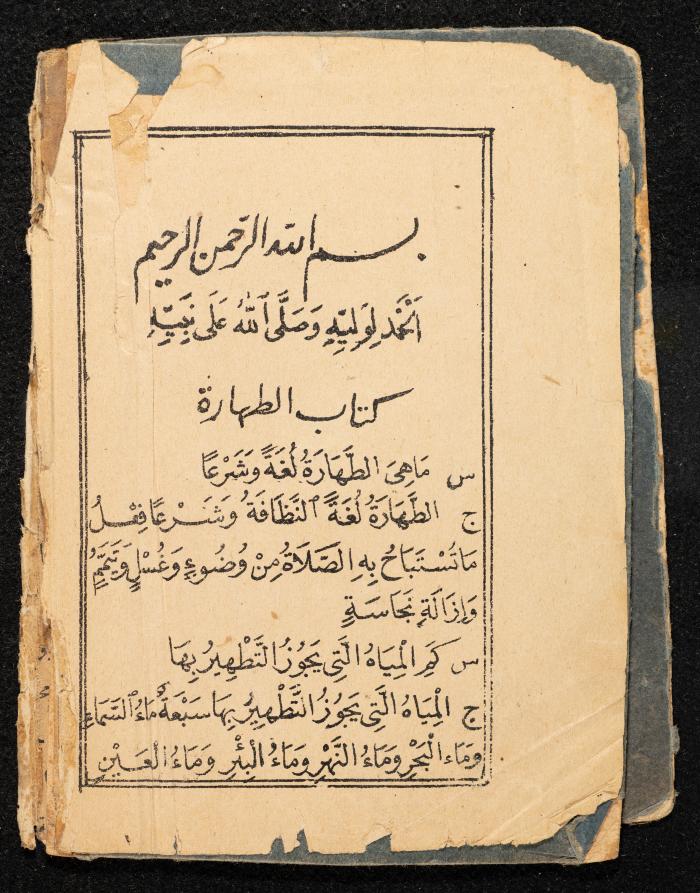 بسم الله الرحمن الرحيم
اَلْحَمْدُ لِوَلِيِّهِ وَصَلَّى ٱللّٰهُ عَلَى نَبِيِّهِ
كتاب الطهارة
س مَاهِىَ الطَّهَارَةُ لُغَةً وَشَرْعًا
ج الطَّهَارَةُ لُغَةً ٱلنَّظَافَةُ وَشَرْعًا فِعْلُ
مَاتُسْتَبَاحُ بِهِ الصَّلَاةُ مِنْ وُضُوءٍ وَغُسْلٍ وَتَيَمُّمٍ
وَإِزَالَةِ نَجَاسَةٍ
س كَمِ الْمِيَاهُ الَّتِى يَجُوزُ التَّطْهِيرُ بِهَا
ج الْمِيَاهُ الَّتِى يَجُوزُ التَّطْهِيرُ بِهَا سَبْعَةٌ مَاءُ ٱلسَّمَاءِ
وَمَاء الْبَحْرِ وَمَاءُ النَّهْرِ وَمَاءُ الْبِئْرِ وَمَاءُ الْعَيْنِ